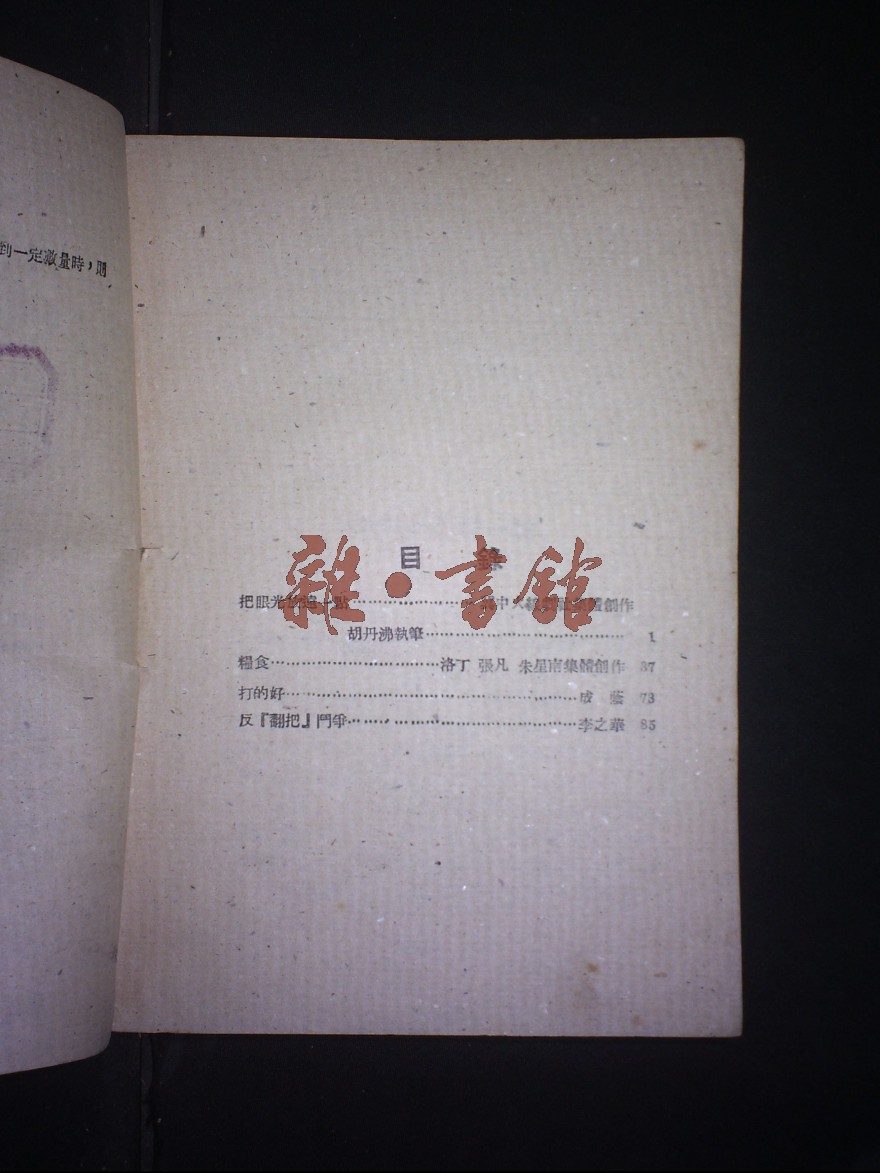 到一定數量時，則
目 錄
雜·書館
把眼光放遠一點……………………集體創作
胡丹沸執筆……………………………1
糧食……………………洛丁 張凡 朱星南集體創作 37
打的好……………………………………成 蔭 73
反『翻把』鬥爭……………………………李之華 85